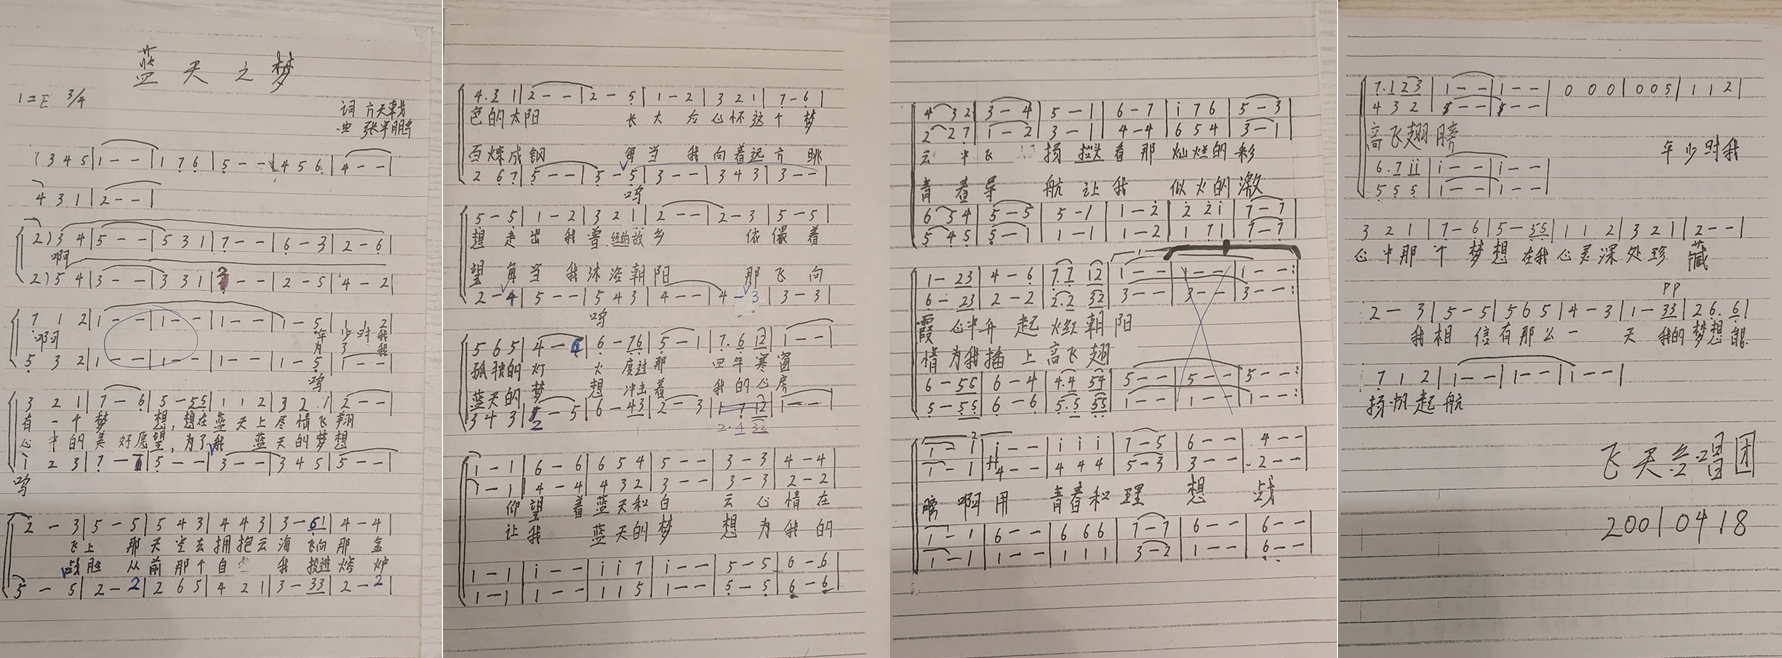 蓝天之梦
1=E 3/4
词
曲
7345|1--|176|5--|456|4--|
431|2--|
2)34|5--|531|7--|6-3|2-6|
啊
2)54|3--|331|
2-5|4-2
712|1--|1--|1--|1-5
啊
年少时我
532|1--|1--|1--|1-5
呜
321|7-6|5-55|112|321|2--|
有一个梦想,想在蓝天上尽情飞翔
心中的美好愿望,为了我蓝天的梦想
呜
2-3|5-5|543|443|3-61|4-4
飞上那天空去拥抱云海飞向那金
战胜从前那个自 我投进烤炉
5-5|2-2|265|421|3-33|2-2
4.31|2--|2-5|1-2|321|7-6|
色的太阳 长大为心怀这个梦
百炼成钢 每当我向着远方眺
267|5--|5-5|3--|343|3--|
呜
5-5|1-2|321|2--|2-3|5-5|
想走出我曾经的故乡 依偎着
望每当我沐浴朝阳 那飞向
2-4|5--|543|4--|4-3|3-3|
呜
565|4-6|6-76|5-1|7.612|1--|
孤独的灯火度过那四年寒窗
蓝天的梦想冲击着我的心房
343|
-5|6-43|2-3|
1-1|6-6|654|5--|3-3|4-4|
1-1|4-4|432|3--|3-3|2-2|
仰望着蓝天和白云心情在
让我蓝天的梦想为我的
1-1|1--|117|1--|5-5|6-6|
1-1|1--|115|1--|5-5|6-6|
4-32|3-4|5-1|6-7|176|5-3|
2-27|1-2|3-1|4-4|654|3-1|
云中飞 扬 着那灿烂的彩
青春导航让我似火的激
654|5-5|5-1|1-2|221|7-7|
545|5-1|1-1|1-1|171|7-7|
1-23|4-6|7.112|1--|1--|1--:
6-23|2-2|2.232|3--|3--|3--:
霞心中升起燃朝阳
情为我插上高飞翅
6-55|6-4|4.454|5--|5--|5--:
5-55|6-6|5.555|1--|1--|1--:
111|7-5|6--|4--|
444|5-3|3--|2--|
膀啊用青春和理想战
1-1|6--|666|7-7|6--|6--|
1-1|1--|111|3-2|1--|6--|
7.123|1--|1--|000|005|112|
432|
高飞翅膀
年少时我
6.711|1--|1--|
555|1--|1--|
321|7-6|5-55|112|321|2--|
心中那个梦想在我心灵深处珍藏
pp
2-3|5-5|565|4-3|1-33|26.6|
我相信有那么一天我的梦想能
712|1--|1--|1--|
扬帆起航
飞天合唱团
20010418